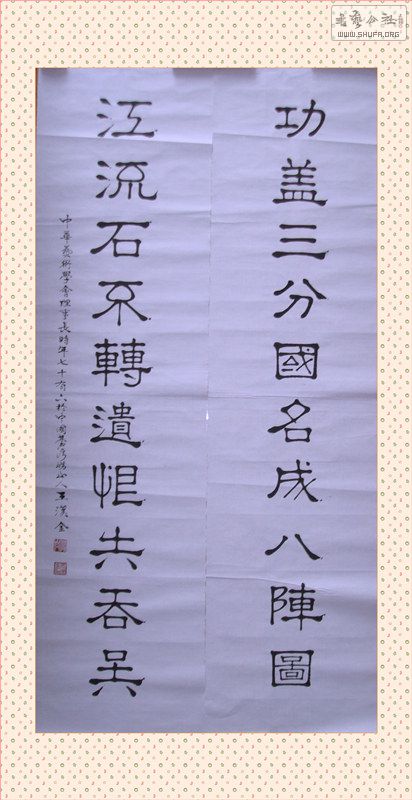 書藝公社
WWW.SHUFA.ORG
功盖三分國名成八陣圖
江流石不轉遺恨失吞吳
中華藝術學會理事長時年七十有六於中國臺灣山人王漢金